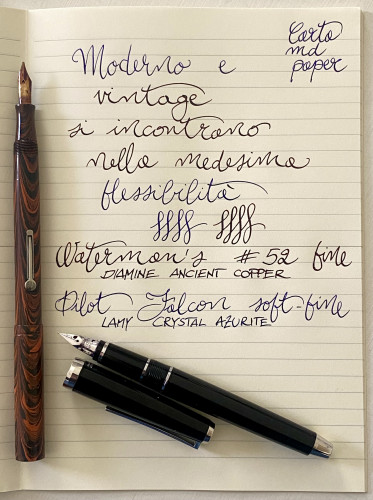 Carta
md
paper
Moderno e
vintage
si incontrano
nella medesima
flessibilità
Waterman's #52 fine
DIAMINE ANCIENT COPPER
Pilot Falcon soft-fine
LAMY CRYSTAL AZURITE